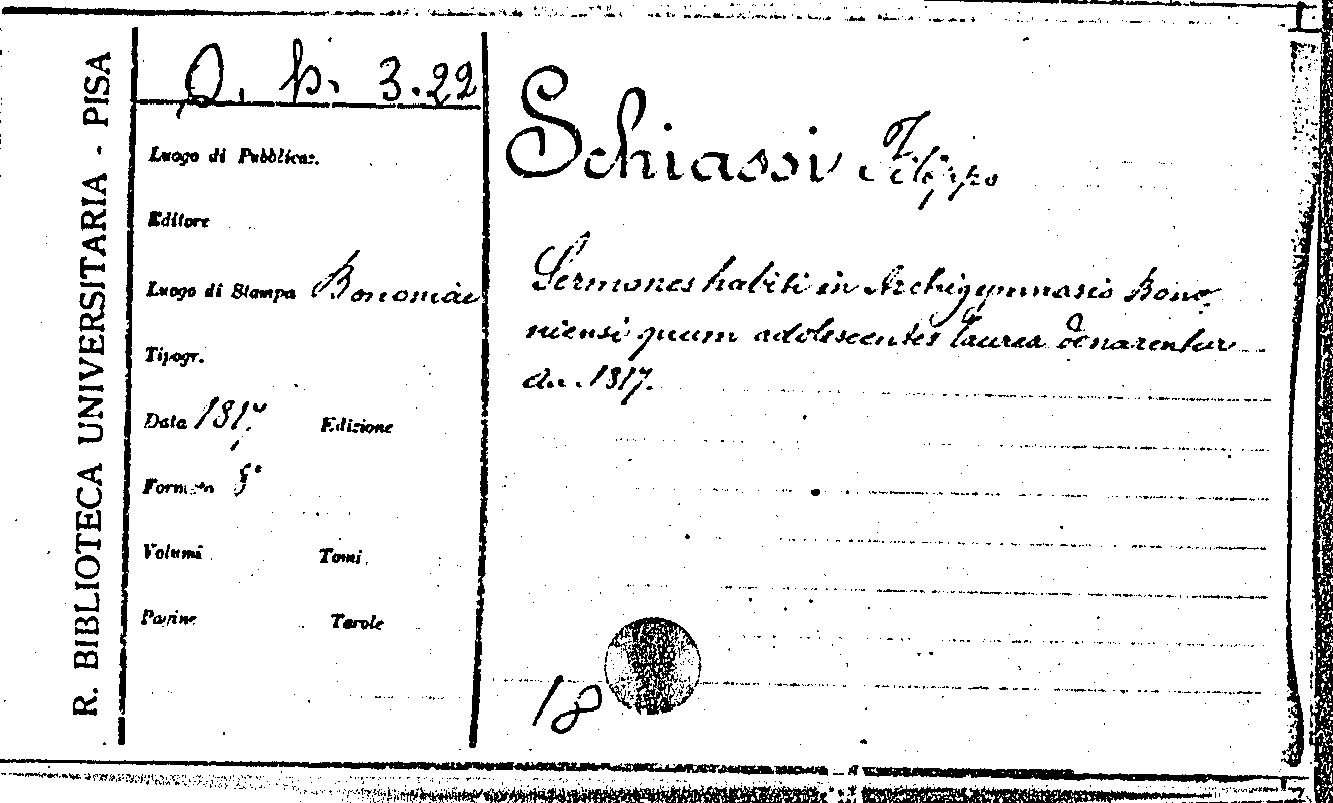 R. BIBLIOTECA UNIVERSITARIA - PISA
Q. h. 3.22
Luogo di Pubblicaz.
Editore
Luogo di Stampa Bononiae
Tipogr.
Data 1817 Edizione
Formato 8°
Volumi Tomi
Pagine Tavole
Schiassi Filippo
Sermones habiti in Archigymnasio Bono-
niensi quum adolescentes laurea donarentur
an. 1817.
18